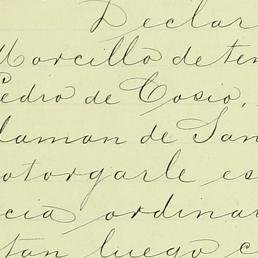 Declar
Morcillo de ten
Pedro de Cosio,
llaman de San
otorgarle es
cia ordina
tan luego c